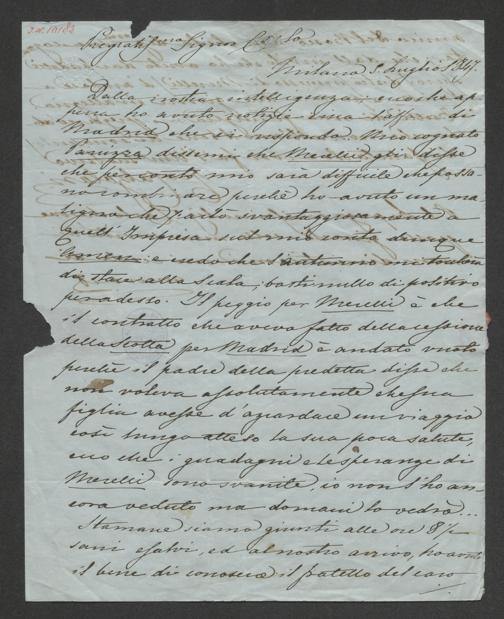 Pregiatissma Signor
Milano 5 Luglio 1847.
Dalla nostra intelligenza, ecco che ap=
pena ho avuto notizie sull'affare di
Madrid che vi rispondo. Mio cognato
dissemi che Merelli gli disse
che per conto mio sarà difficile che possa-
no combinare perchè ho avuto un ma=
ligno che parlò svantaggiosamente a
quell'Impresa sul mio conto dunque
e vedi che l'autunno
di stare alla Scala, basti nullo di positivo
per adesso. Il peggio per Merelli è che
il contratto che aveva fatto della cessione
della Scotta per Madrid è andato vuoto
perchè il padre della predetta disse che
non voleva assolutamente che sua
figlia avesse d'azzardare un viaggio
così lungo atteso la sua poca salute,
ecco che i guadagni e le speranze di
Merelli sono svanite, io non l'ho an=
cora veduto ma domani lo vedrò...
Stamane siamo giunti alle ore 8 1/2
sani e salvi, ed al nostro arrivo, ho avuto
il bene di conoscere il fratello del caro